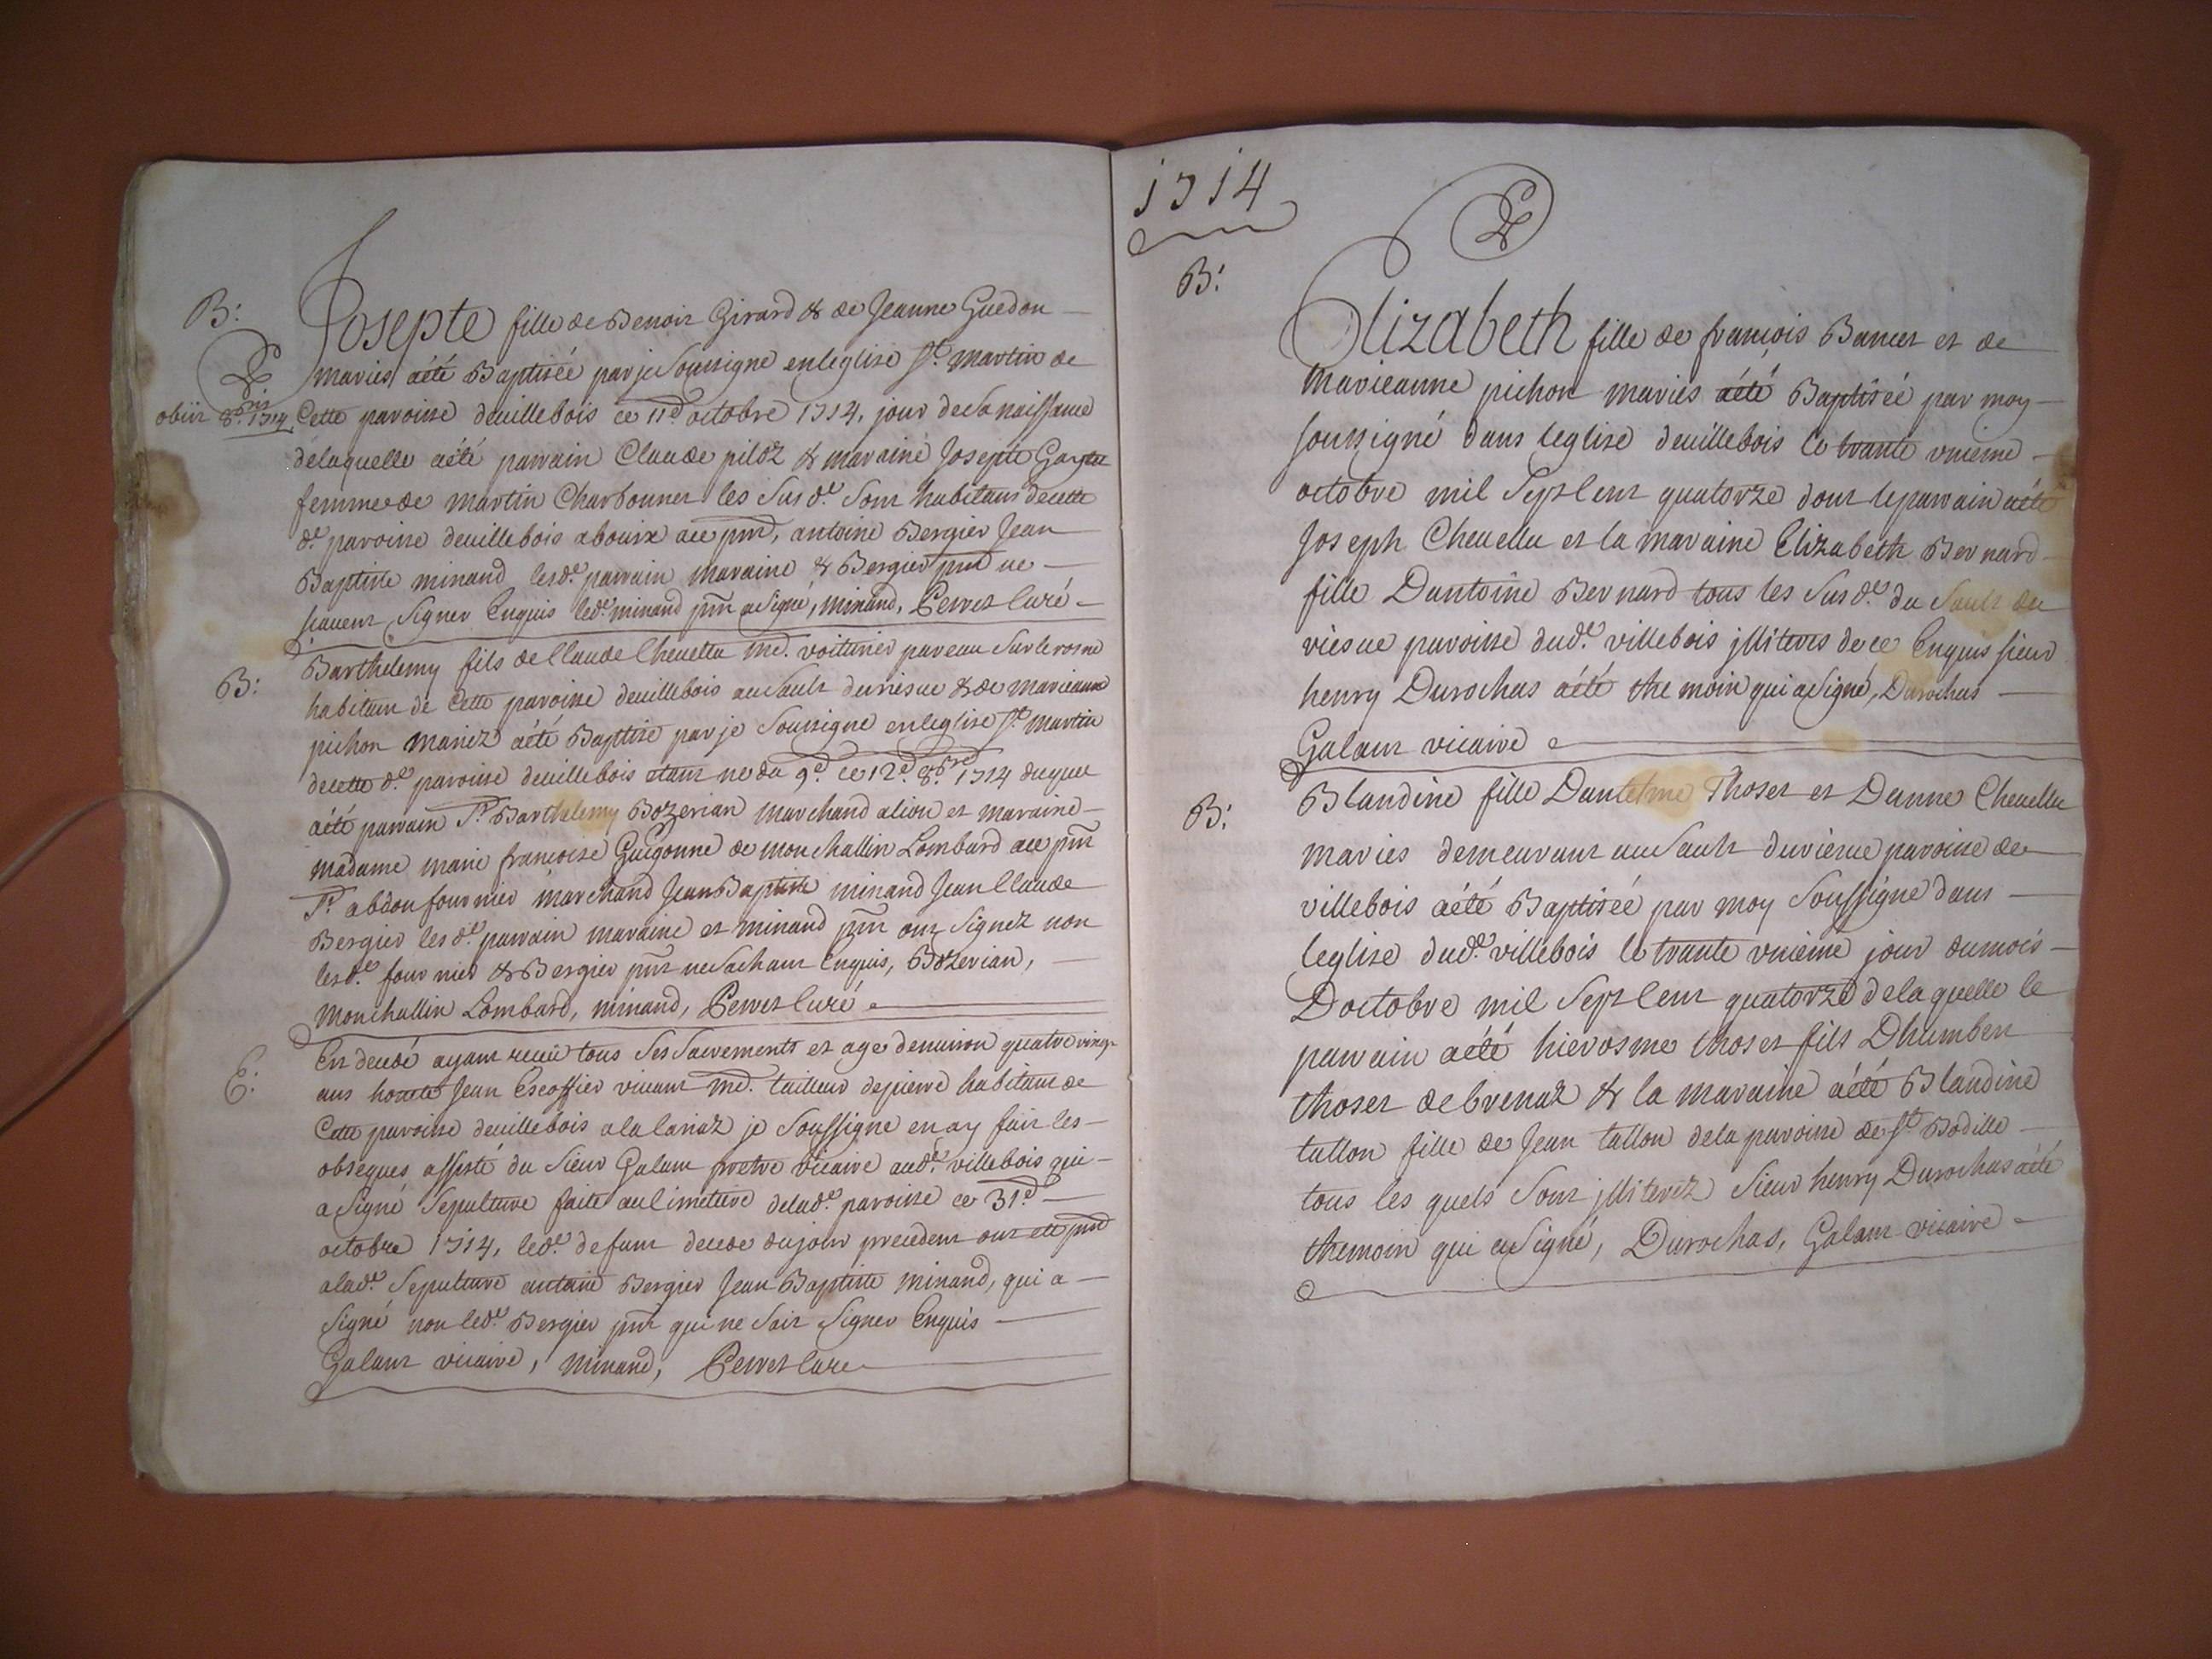 B:
Josepte fille de Benoit Girard & de Jeanne Guedon
maries aété Baptiséé par je Soussigne enleglise St. martin de
obiit 8.bris 1714.
Cette paroisse deuillebois ce 11e octobre 1714, jour desa naissance
delaquelle aété parrain Claude piloz & maraine Josepte
femme de martin Charbonnet les Susd.s Sont habitans decette
d.e paroisse deuillebois abouix ace pnt, antoine Bergier Jean
Baptiste minand lesd.s parrain maraine & Bergier pnt ne
scauent Signer Enquis led.t minand pnt a Signé, minand, Perret Curé
B:
Barthelemy fils de Claude Cheuellu md. voiturier par eau Sur le rosne
habitant de Cette paroisse deuillebois au Sault duriesue & de marieanne
pichon mariez aété Baptisé par je Soussigne enleglise St. martin
decette d.e paroisse deuillebois etant ne du 9e ce 12e 8.bre 1714 duquel
aété parrain Sr. Barthelemy Bozerian marchand alion et maraine
madame marie francoise Guigonne de monchallin Lombard ace pnt
Sr. abdon fournier marchand Jean Baptiste minand Jean Claude
Bergier lesd.s parrain maraine et minand pnt ont Signez non
lesd.s fournier & Bergier pnt ne Sachant Enquis, Bozerian,
monchallin Lombard, minand, Perret Curé
E:
Est decedé ayant receu tous Ses Sacrements et age denuiron quatre vingt
ans honete Jean Escoffier viuant md. tailleur depierre habitant de
Cette paroisse deuillebois alalariaz je Soussigne en ay fait les
obseques assisté du Sieur Galant pretre vicaire aud.t villebois qui
a Signé Sepulture faite au Cimetiere delad.e paroisse ce 31e
octobre 1714, led.t defunt decede dujour precedent ont ete pnt
alad.e Sepulture antoine Bergier Jean Baptiste minand, qui a
Signé non led.t Bergier pnt qui ne Sait Signer Enquis
Galant vicaire, minand, Perret Cure
1714
B:
Elizabeth fille de francois Bancet et de
marieanne pichon maries aété Baptiséé par moy
soussigné dans leglise deuillebois le trante vnieme
octobre mil Sept Cent quatorze dont leparrain aété
Joseph Cheuellu et la maraine Elizabeth Bernard
fille Dantoine Bernard tous les Susd.s du Sault de
viesue paroisse dud.t villebois jlliteres de ce Enquis sieur
henry Durochas aété themoin qui a Signé, Durochas
Galant vicaire
B:
Blandine fille Dantelme Thoset et Danne Cheuellu
maries demeurant au Sault duviesue paroisse de
villebois aété Baptiséé par moy Soussigne dans
leglise dud.t villebois le trante vnieme jour dumois
Doctobre mil Sept Cent quatorze delaquelle le
parrain aété hierosme thoset fils Dhumbert
thoset de brenaz & la maraine aété Blandine
tallon fille de Jean tallon dela paroisse de St. Bodille
tous les quels Sont jlliterez Sieur henry Durochas aété
themoin qui a Signé, Durochas, Galant vicaire